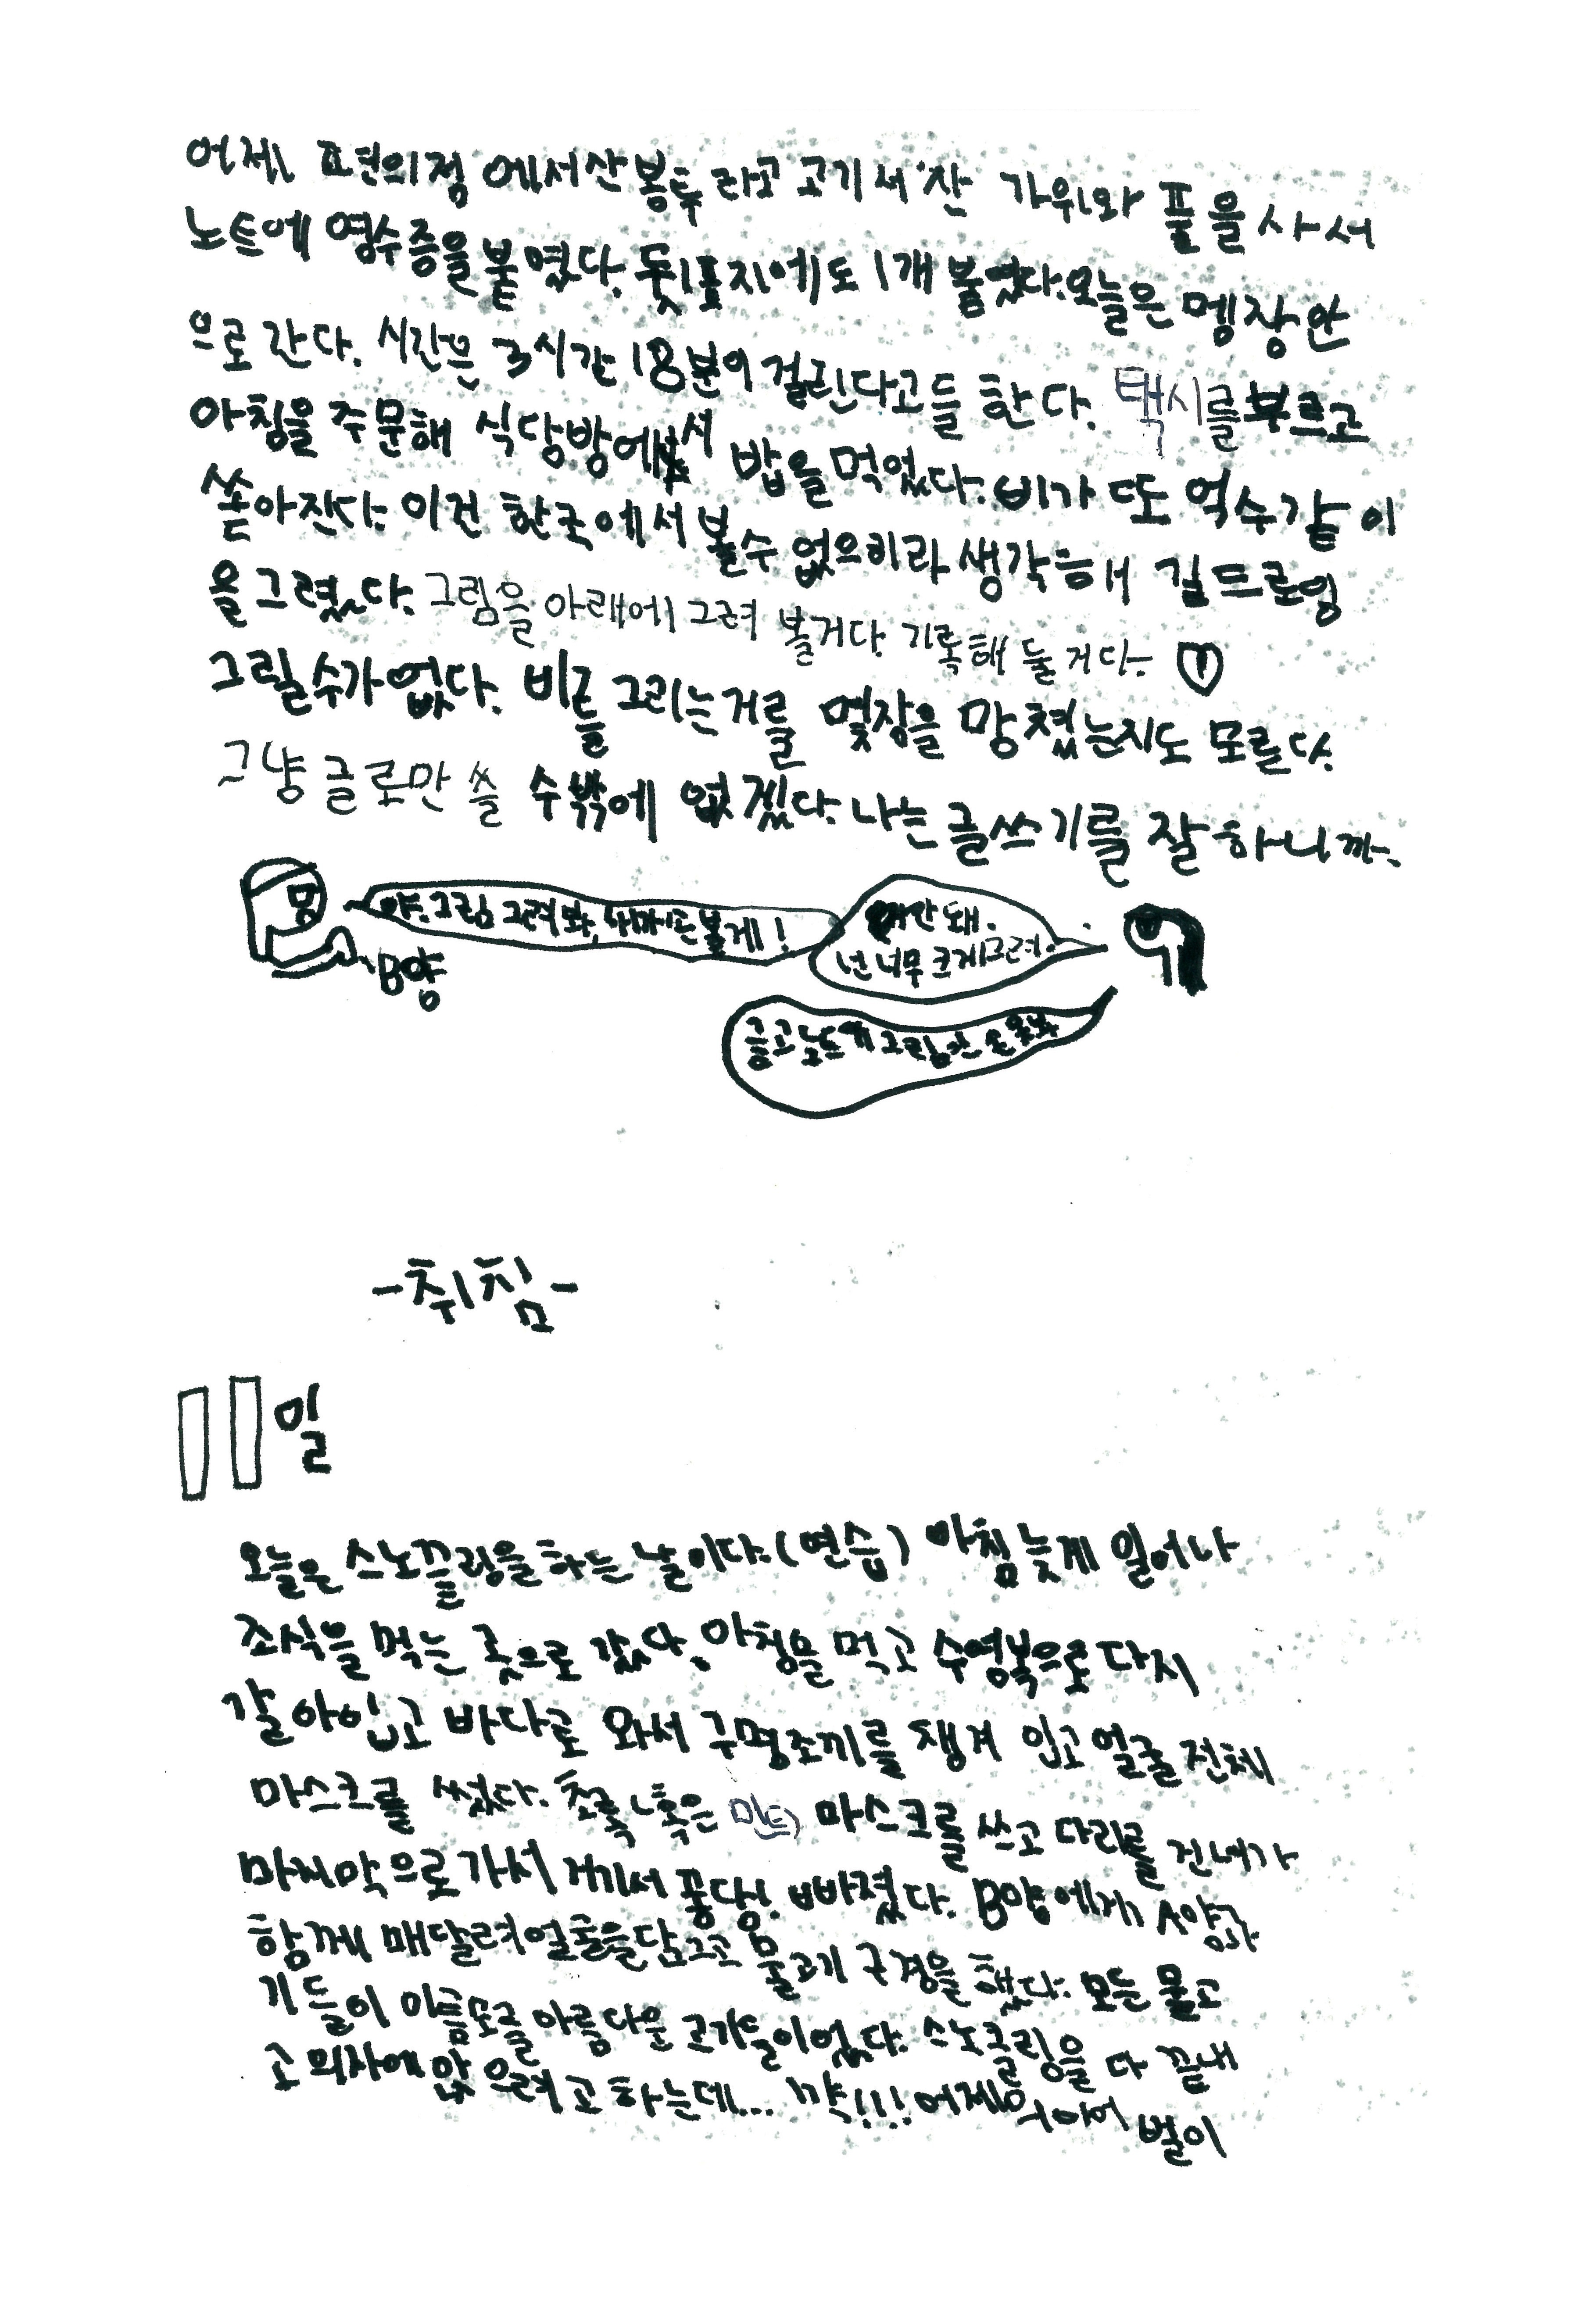 어제 편의점 에서산 봉투 라고 거기서 산 가위와 풀을 사서
노트에 영수증을 붙였다. 뒷표지에도 1개 붙였다. 오늘은 멩장안
으로 간다. 시간은 3시간 18분이 걸린다고들 한다. 택시를 부르고
아침을 주문해 식당방에서 밥을 먹었다. 비가 또 억수같이
쏟아진다. 이건 한국에서 볼수 없으리라 생각해 길드로잉
을 그렸다. 그림을 아래에 그려 볼거다. 기록해 둘 거다.
그릴수가 없다. 비를 그리는거를 몇장을 망쳤는지도 모른다.
그냥 글로만 쓸 수밖에 없겠다. 나는 글쓰기를 잘 하니까.
야. 그림 그려봐, 볼게!
안돼.
넌 너무 크게그려.
B양
-취침-
11일
오늘은 스노클링을 하는 날이다.(연습) 아침 늦게 일어나
조식을 먹는 곳으로 갔다. 아침을 먹고 수영복으로 다시
갈아입고 바다로 와서 구명조끼를 챙겨 입고 얼굴 전체
마스크를 썼다. 초록 (혹은 민트) 마스크를 쓰고 다리를 건너가
마지막으로 가서 거기서 풍덩! 빠졌다. B양에게 A양과
함께 매달려 얼굴을 담그고 물고기 구경을 했다. 모든 물고
기들이 이름모를 아름다운 고기들이었다. 스노클링을 다 끝내
고 의자에 앉으려고 하는데... 꺅!!! 어제 벌이